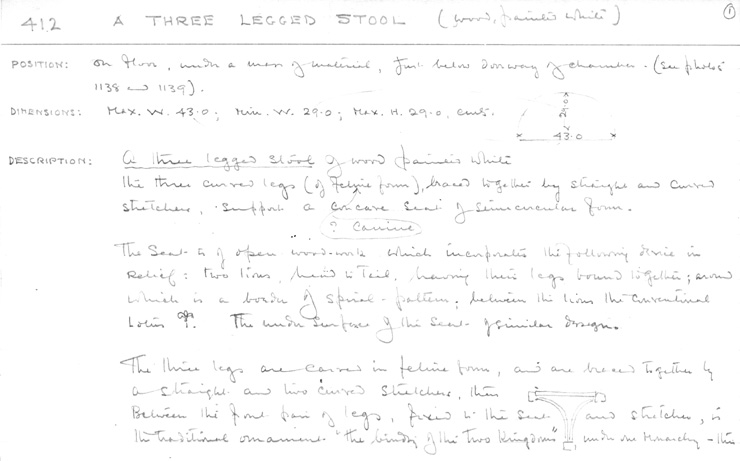 412 A THREE LEGGED STOOL (wood, painted white) 1
POSITION: On floor, under a mass of material, just below doorway of chamber. (See photos
1138 and 1139).
DIMENSIONS: Max. W. 43.0; Min. W. 29.0; Max. H. 29.0, cms.
29.0
43.0
DESCRIPTION: A three legged stool of wood painted white
The three curved legs (of feline form), braced together by straight and curved
stretchers, support a concave seat of semicircular form.
? Canine
The Seat is of open wood-work which incorporates the following device in
relief: two lions, head to tail, having their legs bound together; around
which is a border of spiral-pattern; between the lions the conventional
lotus. The under surface of the seat of similar design.
The three legs are carved in feline form, and are braced together by
a straight and two curved stretchers, then
Between the front pair of legs, fixed to the seat and stretcher, is
the traditional ornament "the binding of the Two Kingdoms", under one monarchy - the